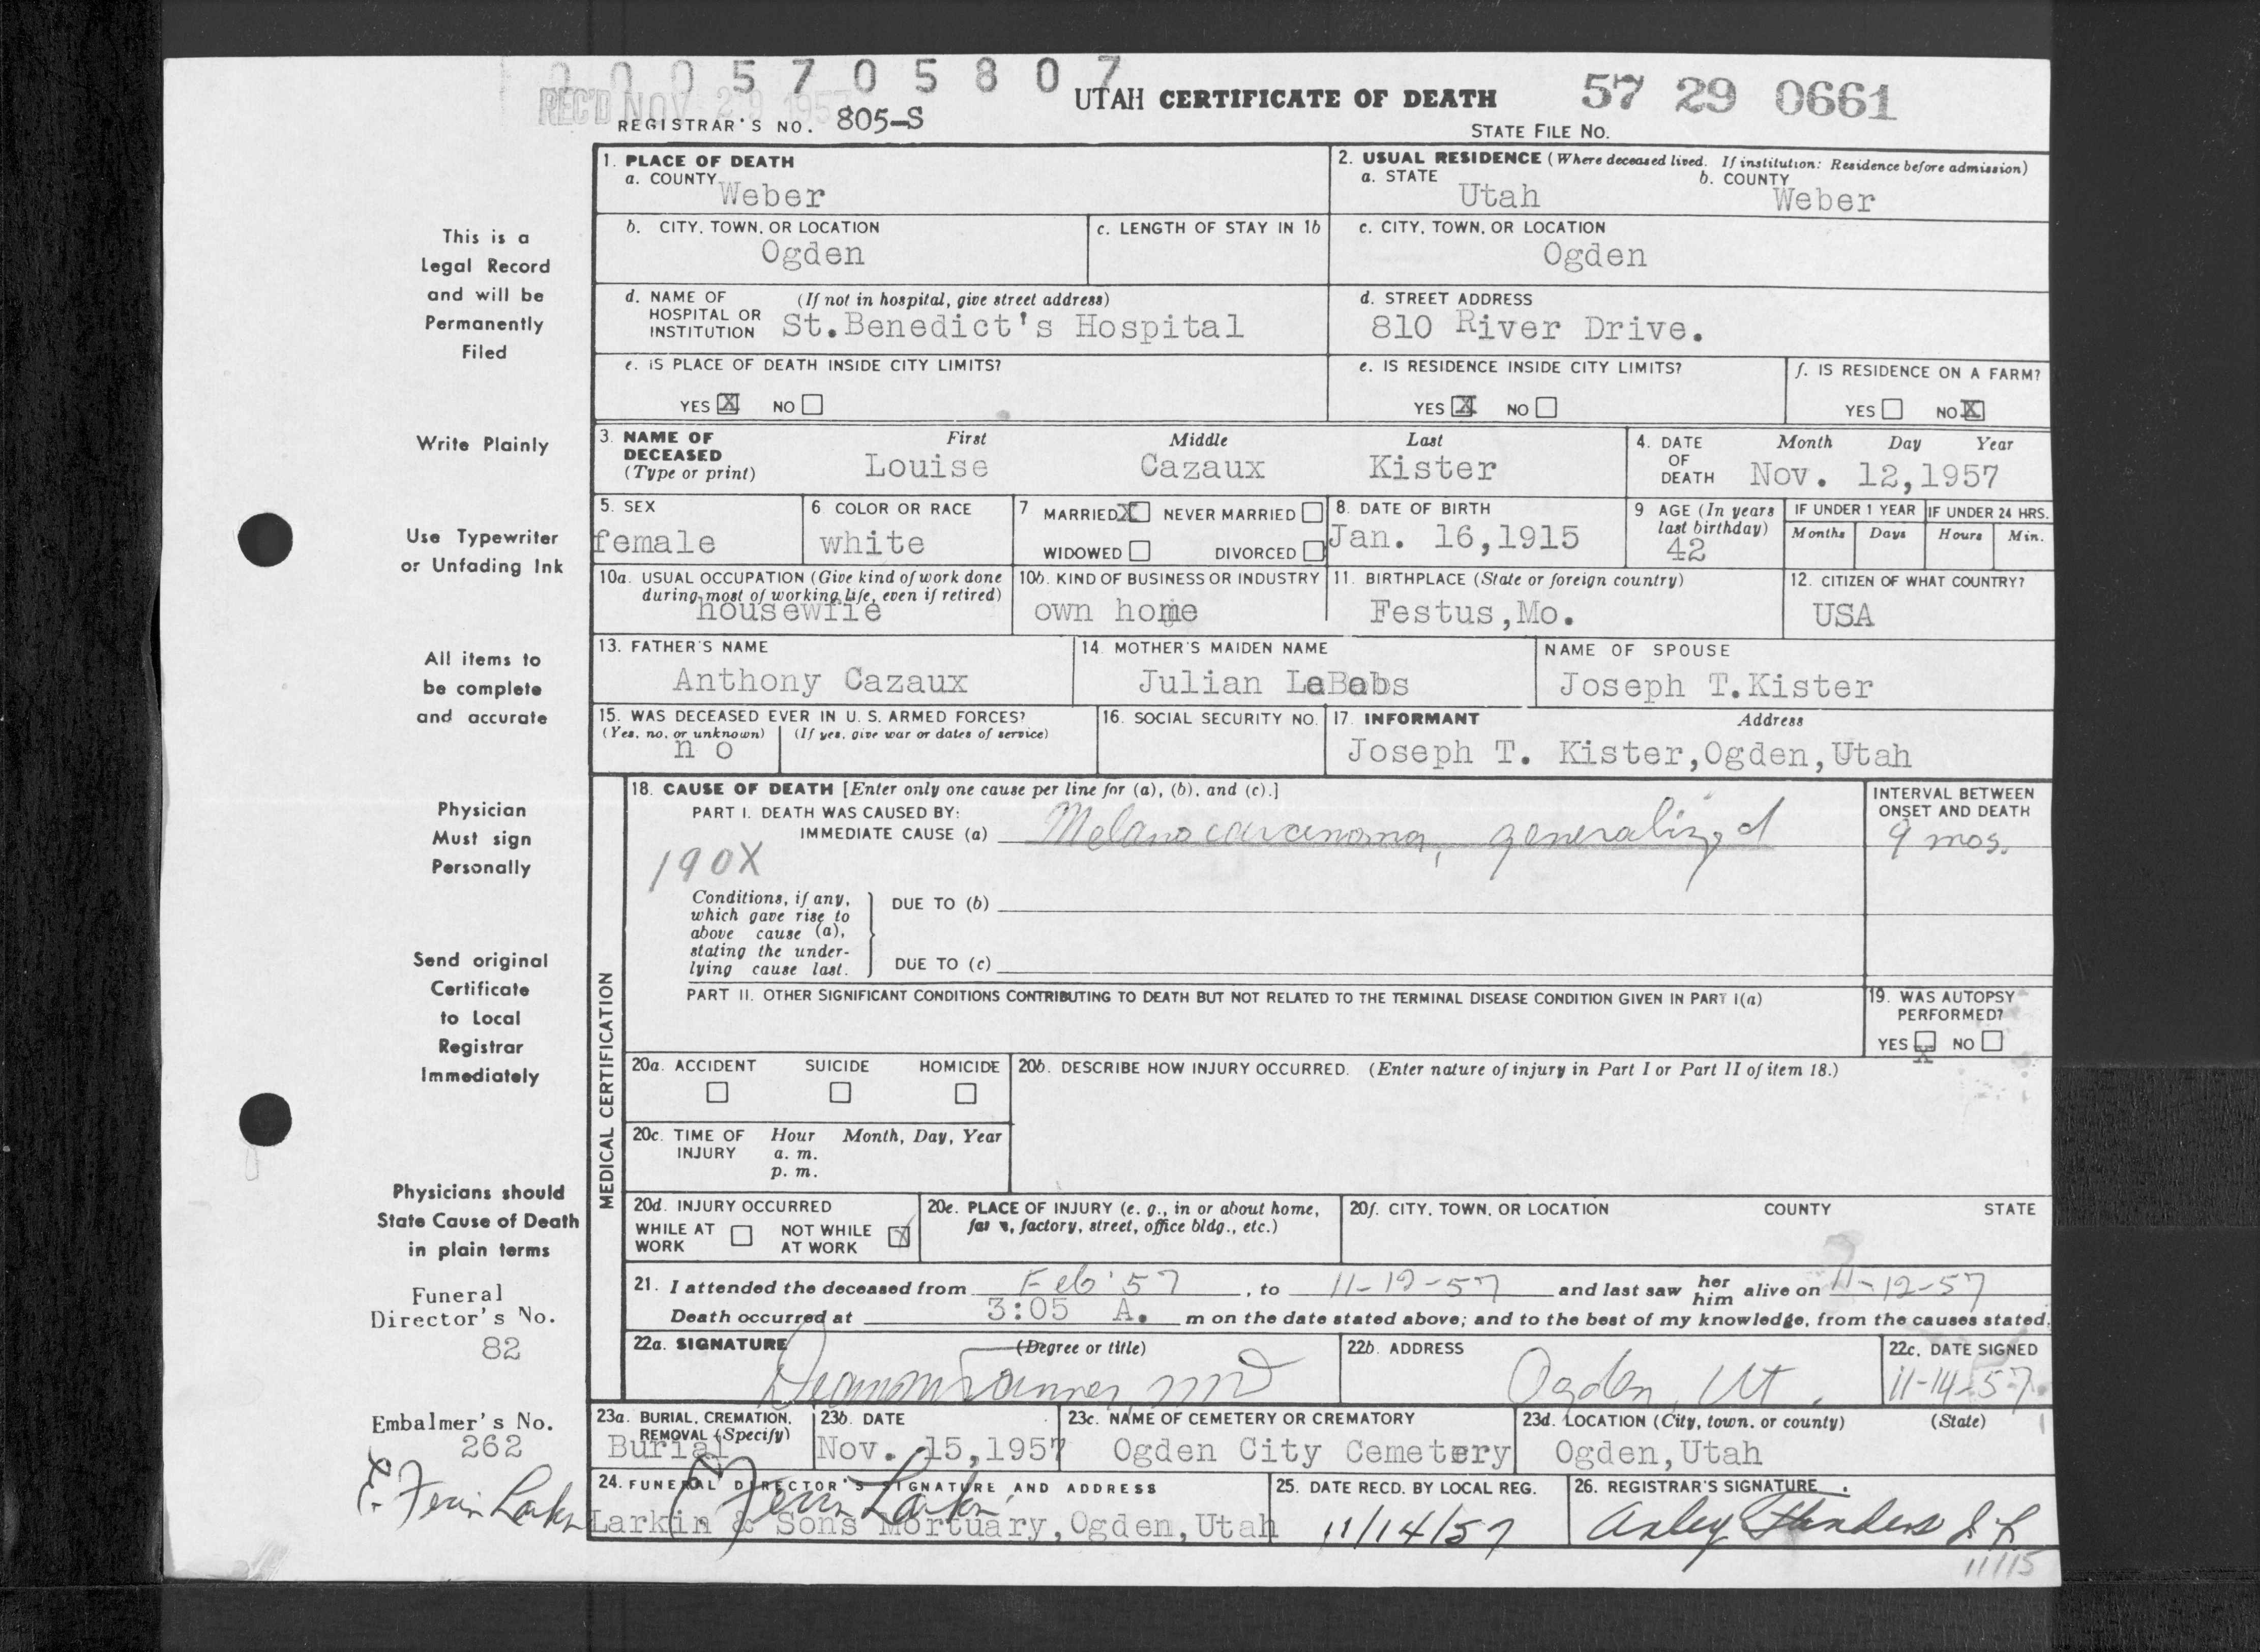 0 0 0 5 7 0 5 8 0 7
REC'D NOV 29 1957
UTAH CERTIFICATE OF DEATH
57 29 0661
REGISTRAR'S NO. 805-S
STATE FILE NO.
1. PLACE OF DEATH
a. COUNTY
Weber
2. USUAL RESIDENCE (Where deceased lived. If institution: Residence before admission)
a. STATE
Utah
b. COUNTY
Weber
b. CITY, TOWN, OR LOCATION
Ogden
c. LENGTH OF STAY IN 1b
c. CITY, TOWN, OR LOCATION
Ogden
d. NAME OF HOSPITAL OR INSTITUTION
(If not in hospital, give street address)
St.Benedict's Hospital
d. STREET ADDRESS
810 River Drive.
e. IS PLACE OF DEATH INSIDE CITY LIMITS?
YES X NO
e. IS RESIDENCE INSIDE CITY LIMITS?
YES X NO
f. IS RESIDENCE ON A FARM?
YES NO X
3. NAME OF DECEASED
(Type or print)
First Middle Last
Louise Cazaux Kister
4. DATE OF DEATH
Month Day Year
Nov. 12,1957
5. SEX
female
6 COLOR OR RACE
white
7 MARRIED X NEVER MARRIED
WIDOWED DIVORCED
8. DATE OF BIRTH
Jan. 16,1915
9 AGE (In years last birthday)
42
IF UNDER 1 YEAR
Months Days
IF UNDER 24 HRS.
Hours Min.
10a. USUAL OCCUPATION (Give kind of work done
during most of working life, even if retired)
housewfie
10b. KIND OF BUSINESS OR INDUSTRY
own home
11. BIRTHPLACE (State or foreign country)
Festus,Mo.
12. CITIZEN OF WHAT COUNTRY?
USA
13. FATHER'S NAME
Anthony Cazaux
14. MOTHER'S MAIDEN NAME
Julian LaBabs
NAME OF SPOUSE
Joseph T.Kister
15. WAS DECEASED EVER IN U. S. ARMED FORCES?
(Yes, no, or unknown) (If yes, give war or dates of service)
n o
16. SOCIAL SECURITY NO.
17. INFORMANT Address
Joseph T. Kister,Ogden,Utah
MEDICAL CERTIFICATION
18. CAUSE OF DEATH [Enter only one cause per line for (a), (b), and (c).]
PART I. DEATH WAS CAUSED BY:
IMMEDIATE CAUSE (a) Melanocarcinoma, generalized
INTERVAL BETWEEN ONSET AND DEATH
9 mos.
190X
Conditions, if any,
which gave rise to
above cause (a),
stating the under-
lying cause last.
DUE TO (b)
DUE TO (c)
PART II. OTHER SIGNIFICANT CONDITIONS CONTRIBUTING TO DEATH BUT NOT RELATED TO THE TERMINAL DISEASE CONDITION GIVEN IN PART I(a)
19. WAS AUTOPSY PERFORMED?
YES X NO
20a. ACCIDENT SUICIDE HOMICIDE
20b. DESCRIBE HOW INJURY OCCURRED. (Enter nature of injury in Part I or Part II of item 18.)
20c. TIME OF INJURY
Hour Month, Day, Year
a. m.
p. m.
20d. INJURY OCCURRED
WHILE AT WORK NOT WHILE AT WORK X
20e. PLACE OF INJURY (e. g., in or about home,
farm, factory, street, office bldg., etc.)
20f. CITY, TOWN, OR LOCATION COUNTY STATE
21. I attended the deceased from Feb '57, to 11-12-57 and last saw her him alive on 11-12-57
Death occurred at 3:05 A. m on the date stated above; and to the best of my knowledge, from the causes stated.
22a. SIGNATURE (Degree or title)
MD
22b. ADDRESS
Ogden, Ut.
22c. DATE SIGNED
11-14-57
23a. BURIAL, CREMATION, REMOVAL (Specify)
Burial
23b. DATE
Nov. 15,1957
23c. NAME OF CEMETERY OR CREMATORY
Ogden City Cemetery
23d. LOCATION (City, town, or county) (State)
Ogden,Utah
24. FUNERAL DIRECTOR'S SIGNATURE AND ADDRESS
Larkin & Sons Mortuary,Ogden,Utah
25. DATE RECD. BY LOCAL REG.
11/14/57
26. REGISTRAR'S SIGNATURE
11/15
This is a
Legal Record
and will be
Permanently
Filed
Write Plainly
Use Typewriter
or Unfading Ink
All items to
be complete
and accurate
Physician
Must sign
Personally
Send original
Certificate
to Local
Registrar
Immediately
Physicians should
State Cause of Death
in plain terms
Funeral
Director's No.
82
Embalmer's No.
262